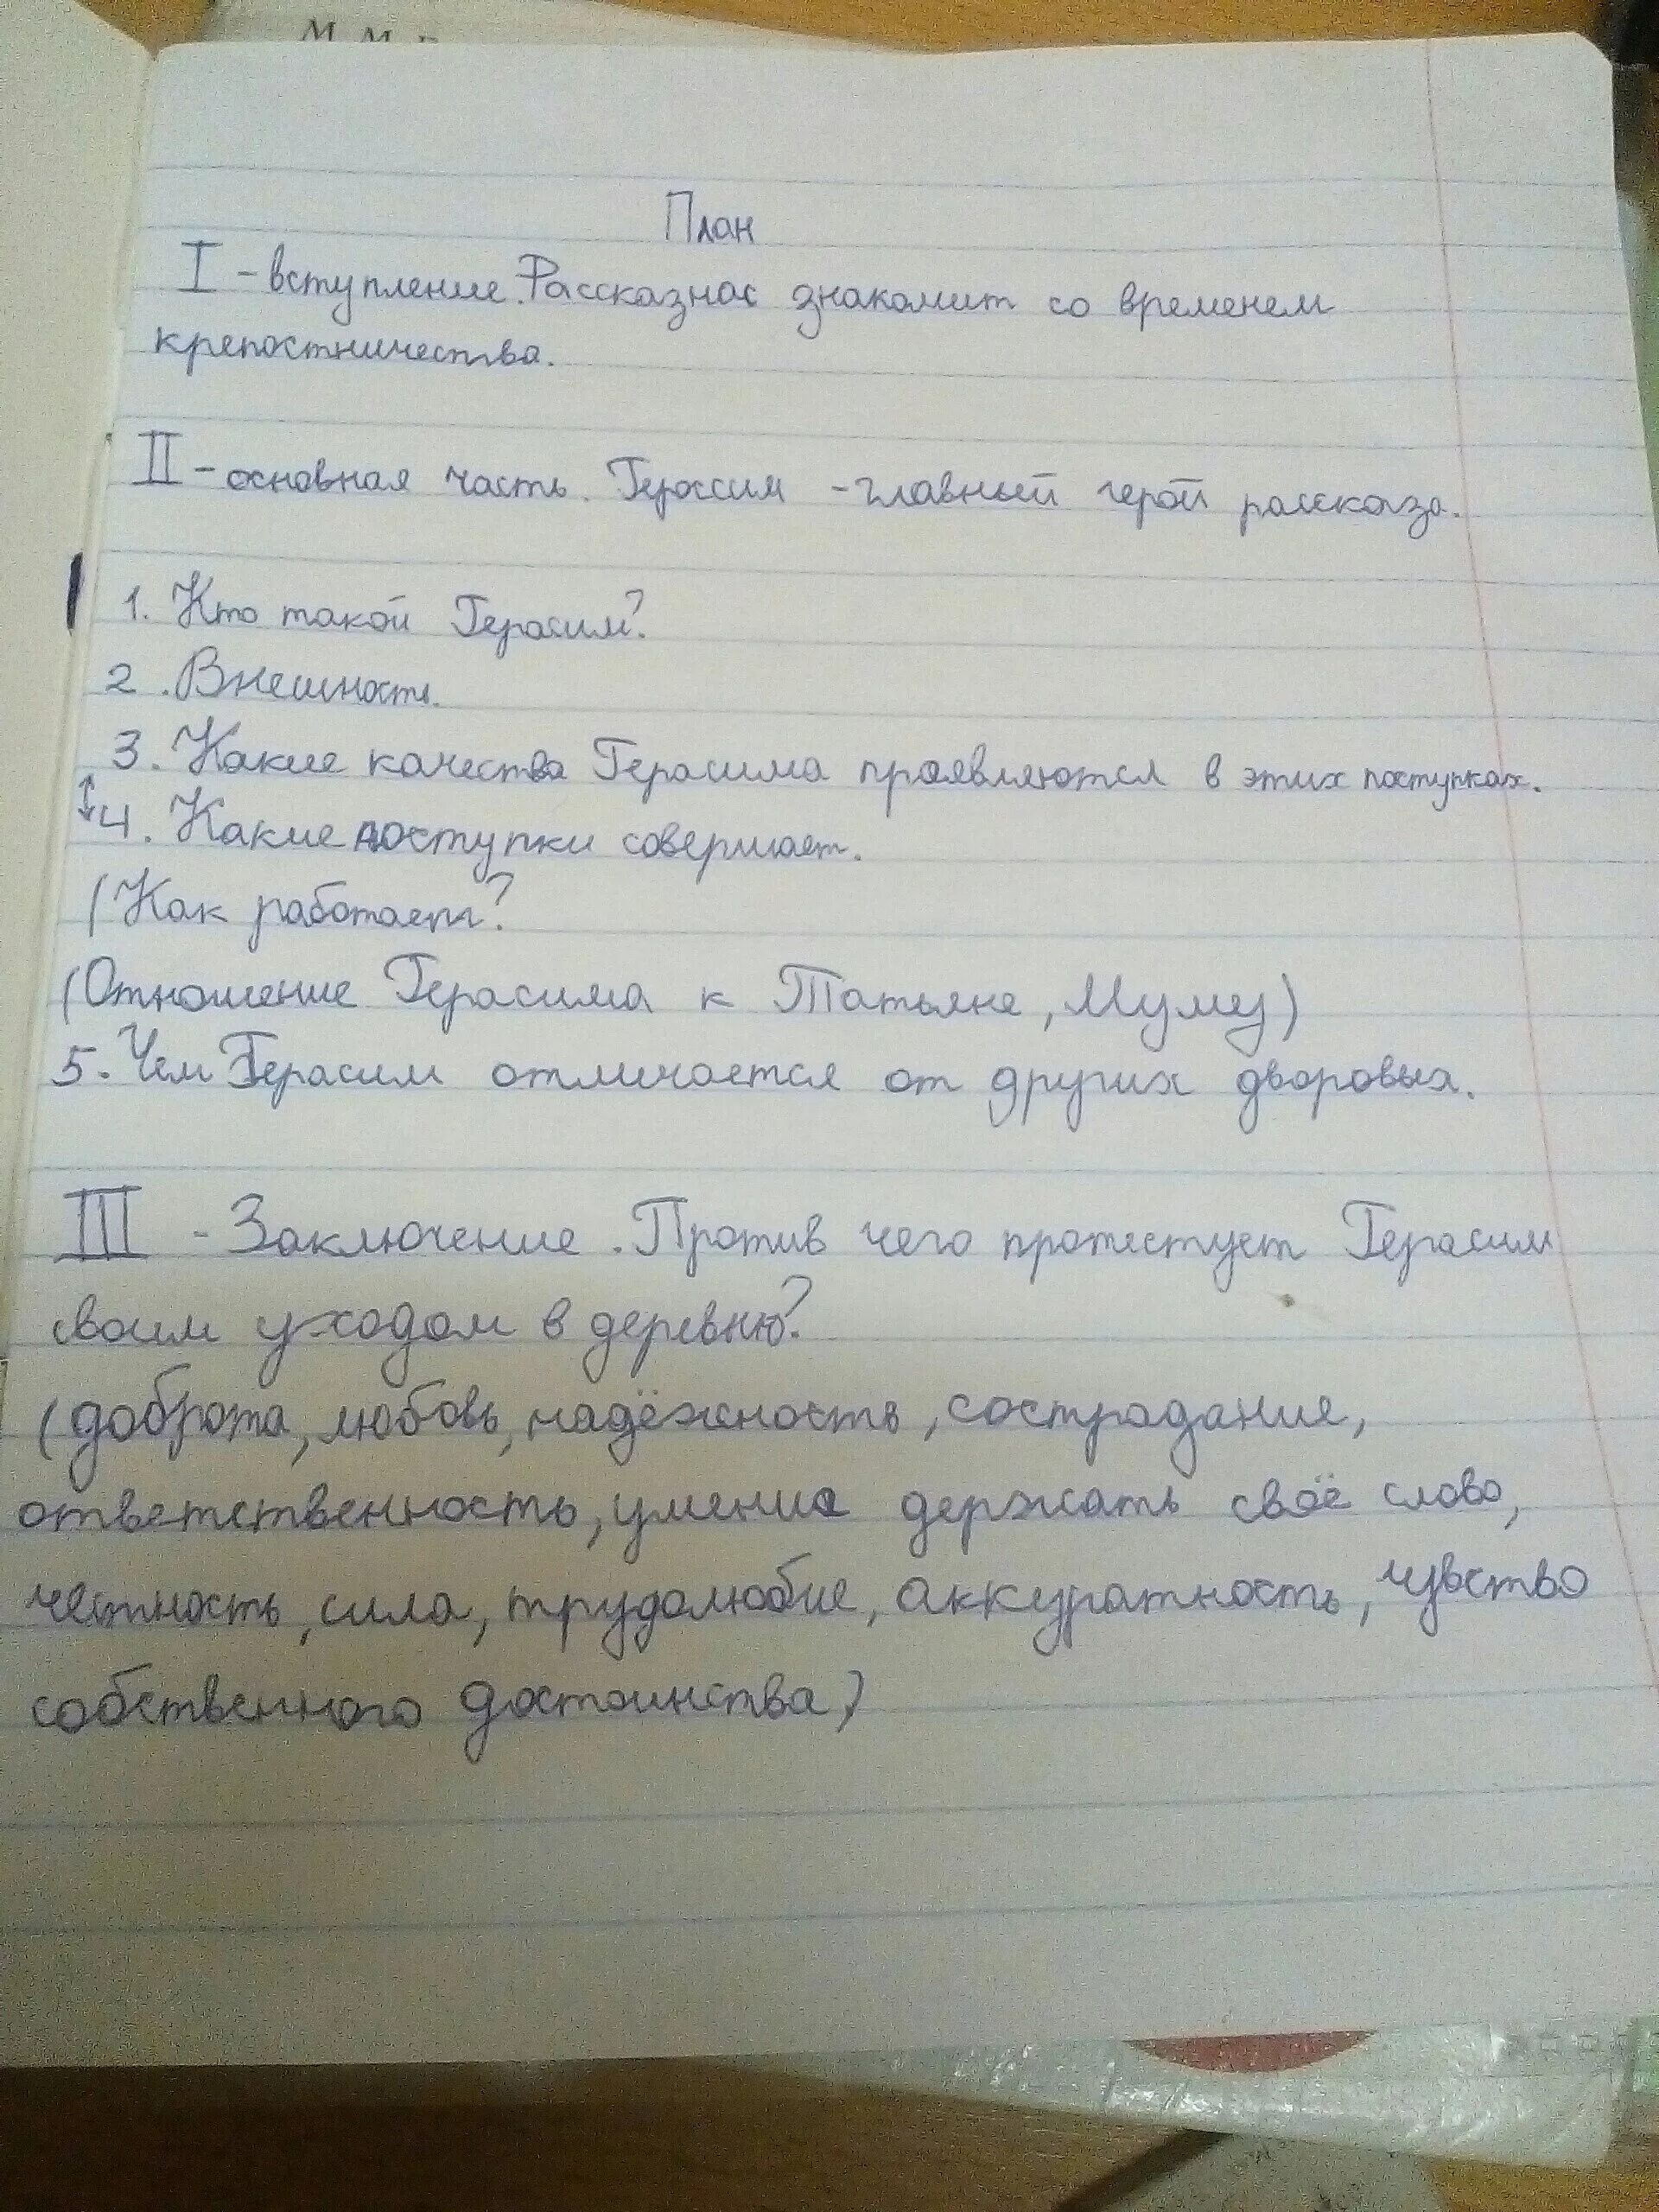 План
I - вступление. Рассказ нас знакомит со временем
крепостничества.
II - основная часть. Герасим - главный герой рассказа.
1. Кто такой Герасим?
2. Внешность.
3. Какие качества Герасима проявляются в этих поступках.
↕4. Какие поступки совершает.
(Как работает?
(Отношение Герасима к Татьяне, Муму)
5. Чем Герасим отличается от других дворовых.
III - Заключение. Против чего протестует Герасим
своим уходом в деревню?
(доброта, любовь, надёжность, сострадание,
ответственность, умение держать своё слово,
честность, сила, трудолюбие, аккуратность, чувство
собственного достоинства)